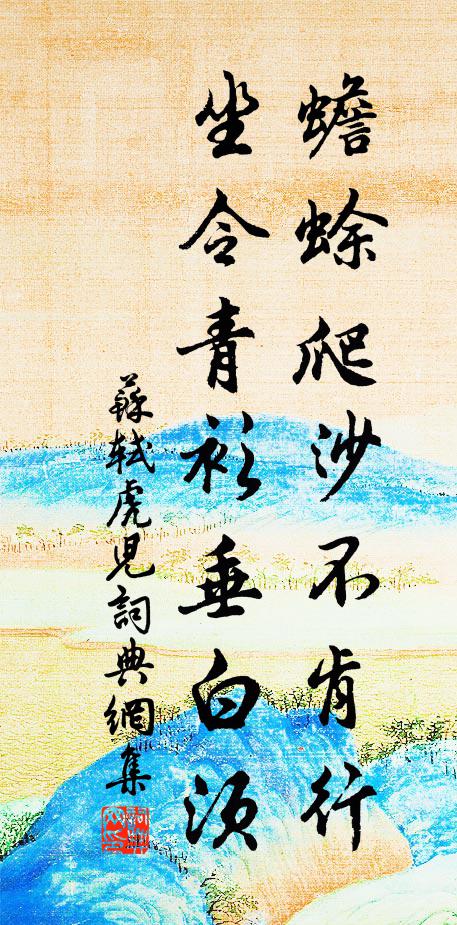 蟾蜍爬沙不肯行
坐令青衫垂白须
蘇軾虎児詞典網集